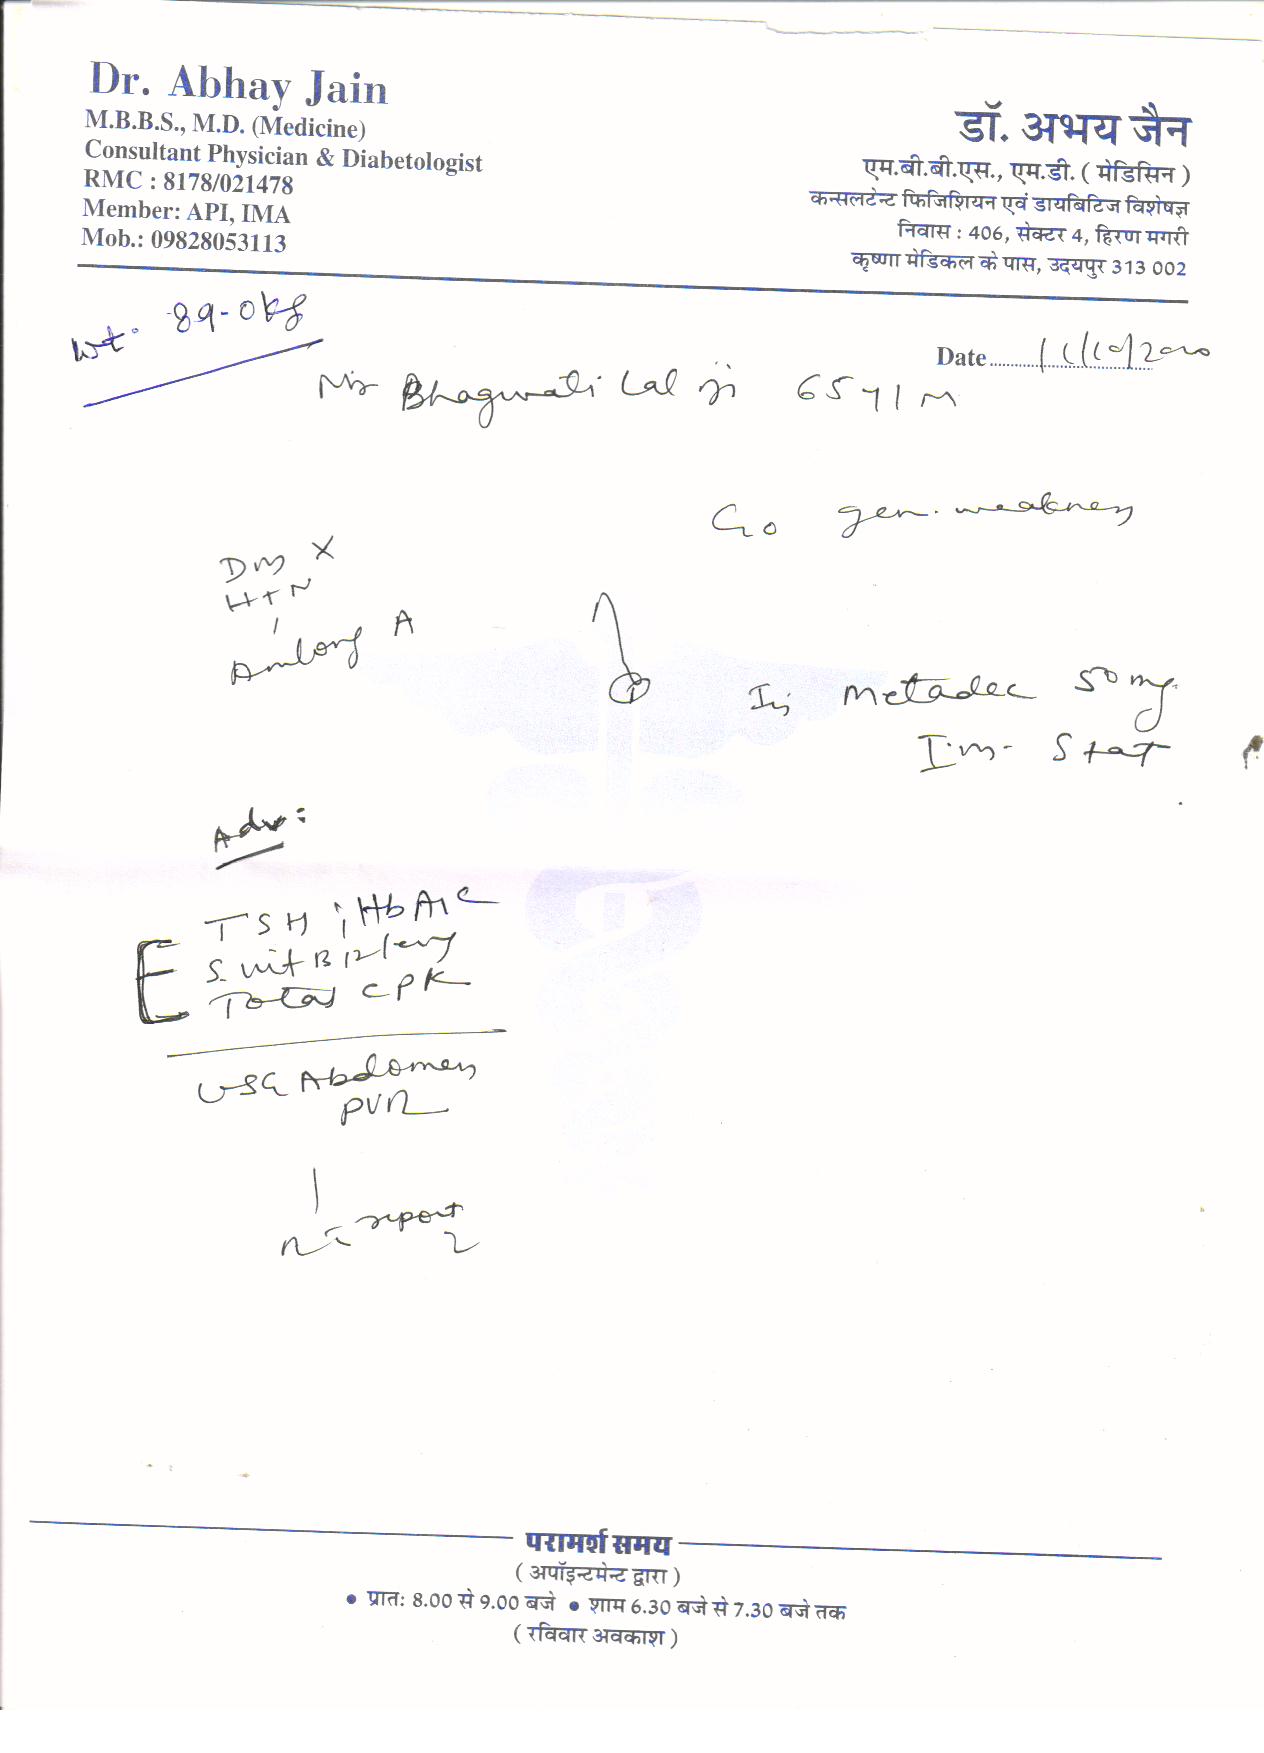 Dr. Abhay Jain
M.B.B.S., M.D. (Medicine)
Consultant Physician & Diabetologist
RMC : 8178/021478
Member: API, IMA
Mob.: 09828053113
डॉ. अभय जैन
एम.बी.बी.एस., एम.डी. ( मेडिसिन )
कन्सलटेन्ट फिजिशियन एवं डायबिटिज विशेषज्ञ
निवास : 406, सेक्टर 4, हिरण मगरी
कृष्णा मेडिकल के पास, उदयपुर 313 002
Wt. 89-0kg
Date
Bhagwati Lal ji 65y/M
gen. weakness
DM X
HTN
Amlong A
Inj Metadec 50mg.
I.m. Stat
Adv:
TSH ; HbA1C
S. Vit B12 level
Total CPK
USG Abdomen
PVR
report
परामर्श समय
( अपॉइन्टमेन्ट द्वारा )
• प्रातः 8.00 से 9.00 बजे • शाम 6.30 बजे से 7.30 बजे तक
( रविवार अवकाश )